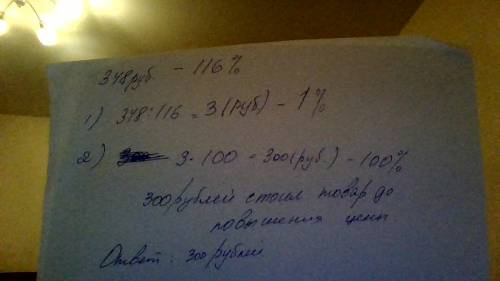 348руб. - 116%
1) 348:116 = 3 (руб) - 1%
2) 3·100 = 300 (руб.) - 100%
300 рублей стоил товар до
повышения цены
Ответ: 300 рублей